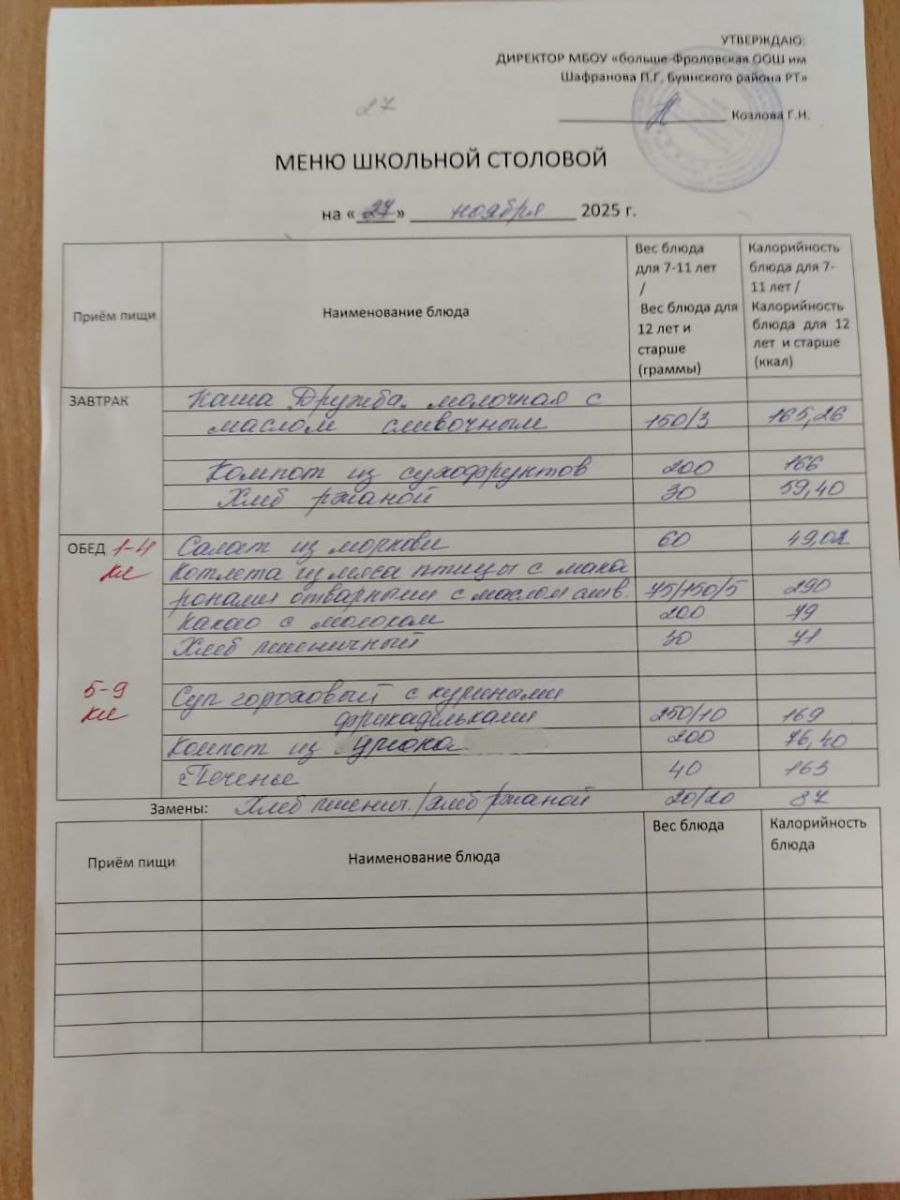 УТВЕРЖДАЮ:
ДИРЕКТОР МБОУ «больше-Фроловская ООШ им
Шафранова П.Г. Буинского района РТ»
27
Козлова Г.Н.
МЕНЮ ШКОЛЬНОЙ СТОЛОВОЙ
на «27» ноября 2025 г.
Приём пищи
Наименование блюда
Вес блюда
для 7-11 лет
/
Вес блюда для
12 лет и
старше
(граммы)
Калорийность
блюда для 7-
11 лет /
Калорийность
блюда для 12
лет и старше
(ккал)
ЗАВТРАК Каша Дружба. молочная с
маслом сливочным 150/3 165,26
Компот из сухофруктов 200 166
Хлеб ржаной 30 59,40
ОБЕД 1-4 Салат из моркови 60 49,02
кл Котлета из мяса птицы с мака
ронами отварными с маслом слив. 75/150/5 290
Какао с молоком 200 79
Хлеб пшеничный 30 71
5-9 Суп гороховый с куриными
кл фрикадельками 250/10 169
Компот из 200 76,40
Печенье 40 163
Замены: Хлеб пшенич./хлеб ржаной 20/20 87
Приём пищи Наименование блюда Вес блюда Калорийность
блюда